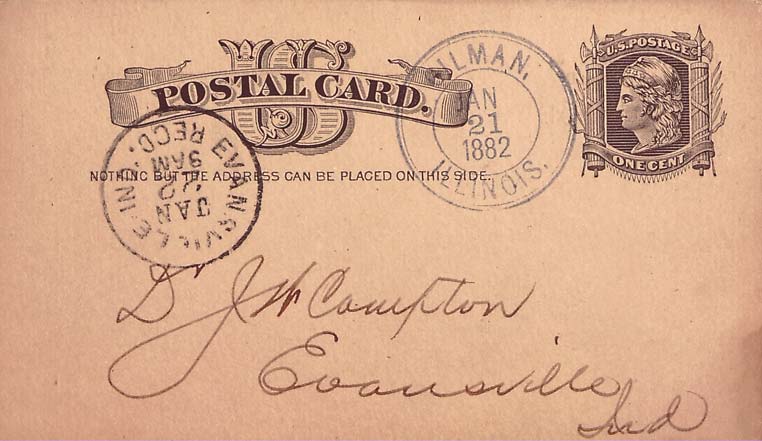 US
POSTAL CARD.
NOTHING BUT THE ADDRESS CAN BE PLACED ON THIS SIDE.
U.S. POSTAGE
ONE CENT
ILMAN,
JAN
21
1882
ILLINOIS.
EVANSVILLE IN
JAN
9AM
RECD.
Dr J W Compton
Evansville
Ind